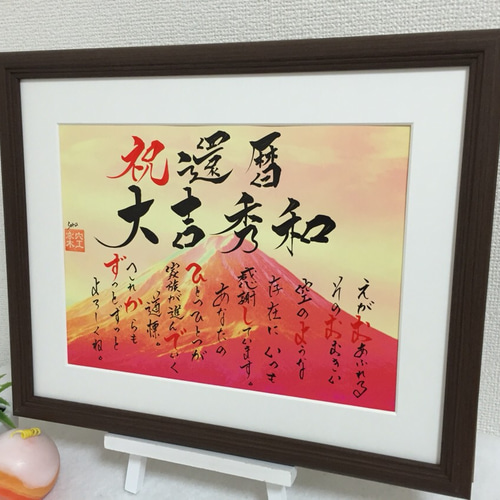 祝還暦
大吉秀和
えがおあふれる
そのおおきい
空のような
存在に いつも
感謝しています。
あなたの
ひとつひとつが
家族が進んでいく
道標。
これからも
ずっとずっと
よろしくね。